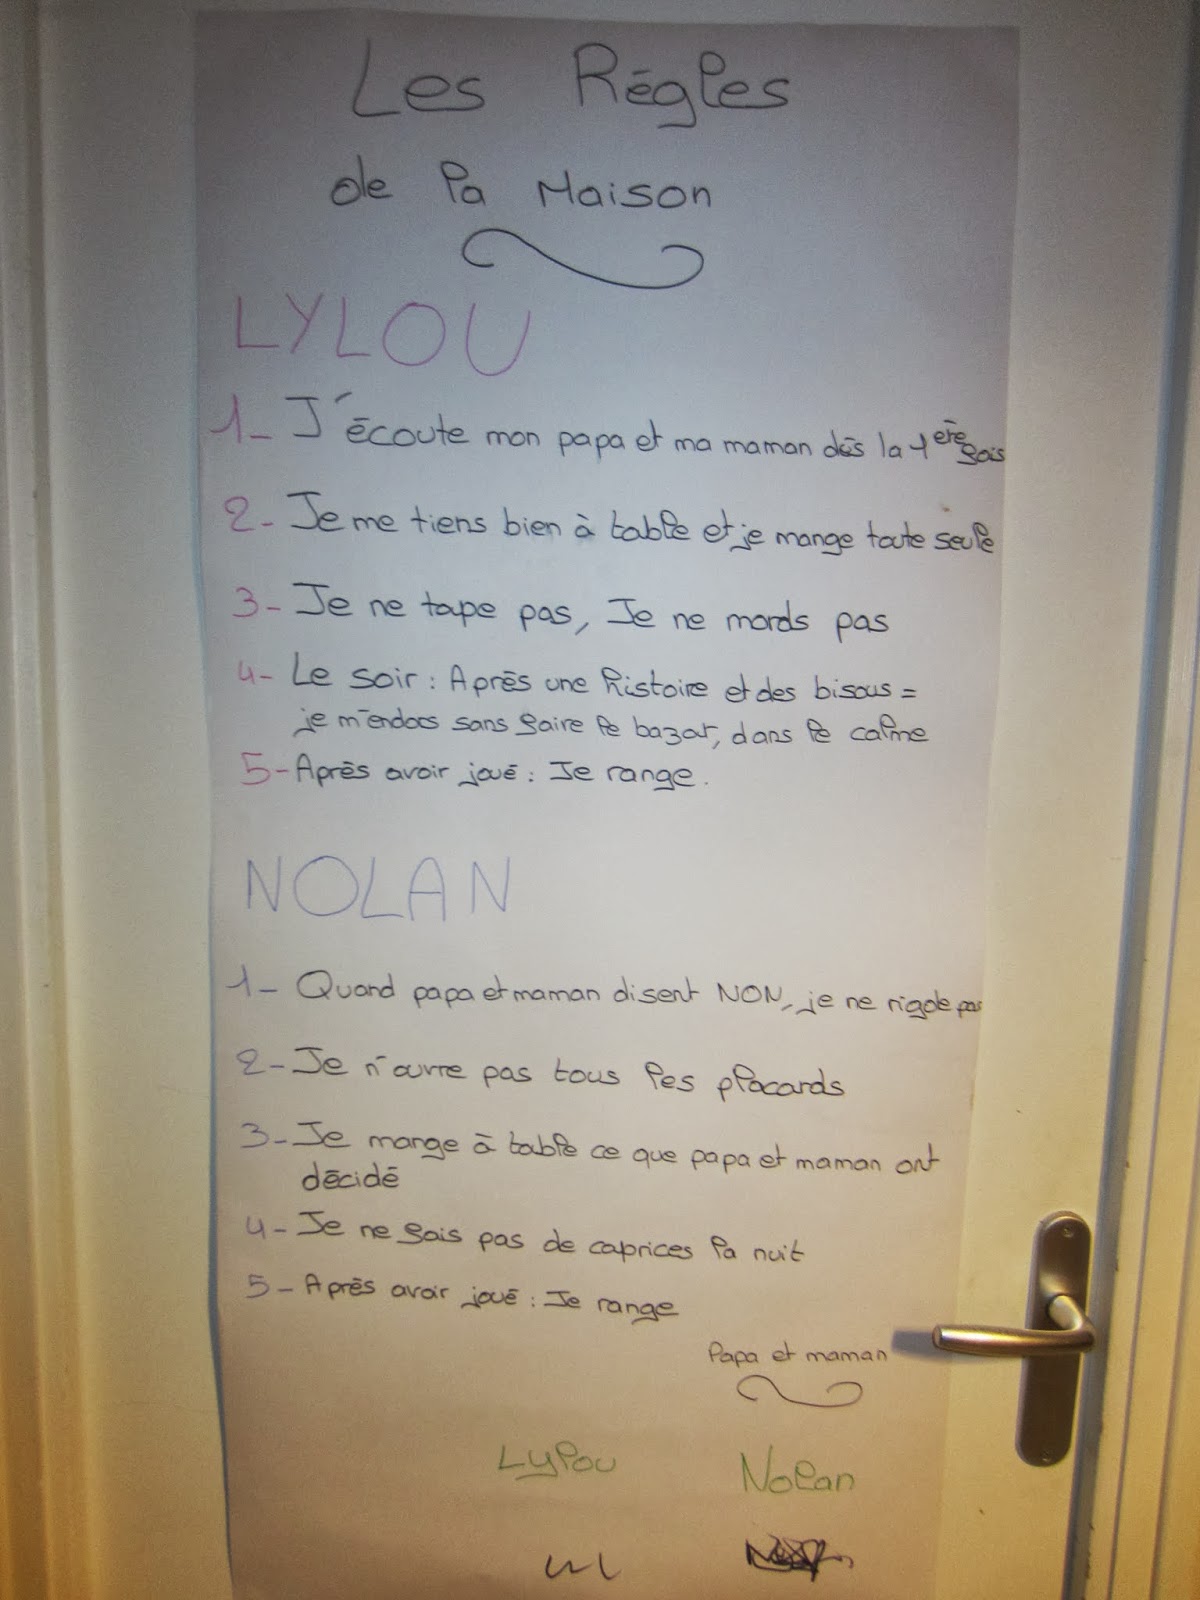 Les Règles
de la Maison
LYLOU
1- J'écoute mon papa et ma maman dès la 1ère fois
2- Je me tiens bien à table et je mange toute seule
3- Je ne tape pas, Je ne mords pas
4- Le soir : Après une histoire et des bisous =
je m'endors sans faire le bazar, dans le calme
5- Après avoir joué : Je range.
NOLAN
1- Quand papa et maman disent NON, je ne rigole pas
2- Je n'ouvre pas tous les placards
3- Je mange à table ce que papa et maman ont
décidé
4- Je ne fais pas de caprices la nuit
5- Après avoir joué : Je range
Papa et maman
Lylou Nolan